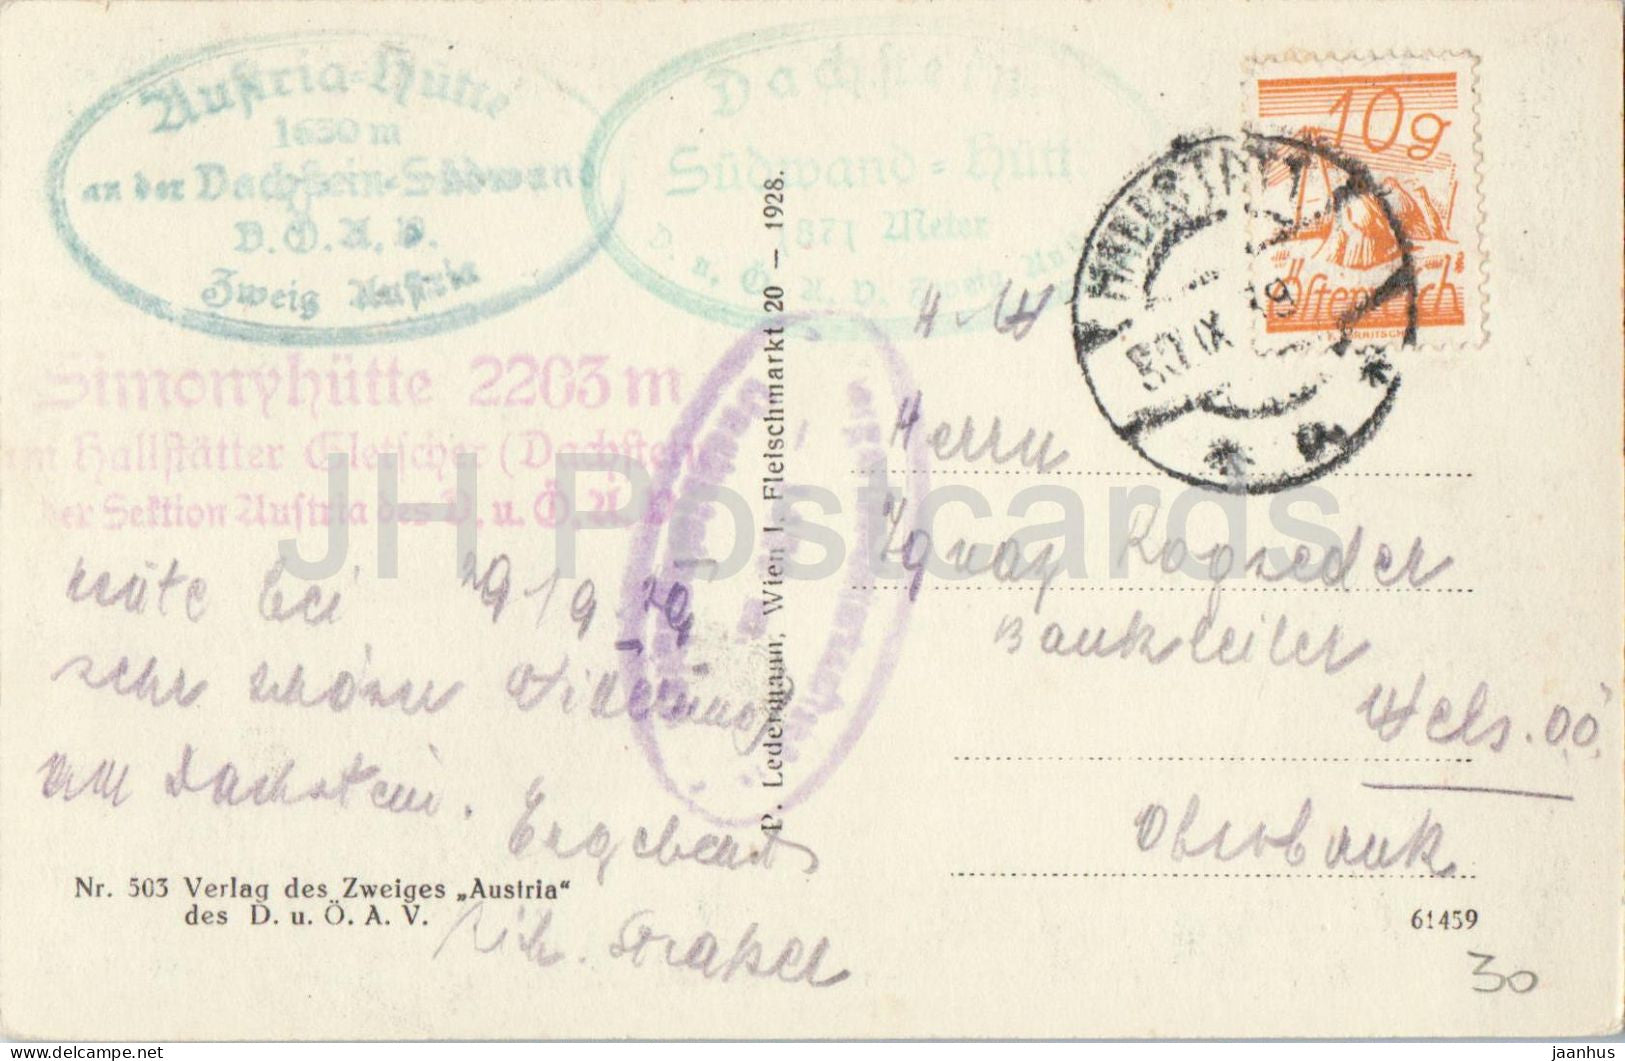 Austria-Hütte
1630 m
an der Dachstein-Südwand
D.Ö.A.V.
Zweig Austria
Dachstein
Südwand-Hütte
1871 Meter
D. u. Ö. A. V. Zweig Au
Simonyhütte 2203 m
am Hallstätter Gletscher (Dachstein)
der Sektion Austria des D. u. Ö. A. V.
10g
Österreich
HALLSTATT
30 IX 29
* a *
29/9 29
sehr schöner
am Dachstein. Ergebenst
Nr. 503 Verlag des Zweiges „Austria“
des D. u. Ö. A. V.
P. Ledermann, Wien I, Fleischmarkt 20 — 1928.
Herrn
Ignaz Rogseder
Bankleiter
Wels. O.Ö.
Oberbank
61459
30
JH Postcards
jaanhus www.delcampe.net